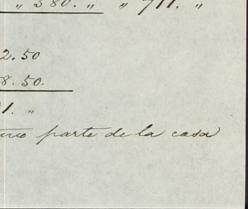 „ 380. „ „ 711. „
2.50
8.50.
1. „
parte de la casa